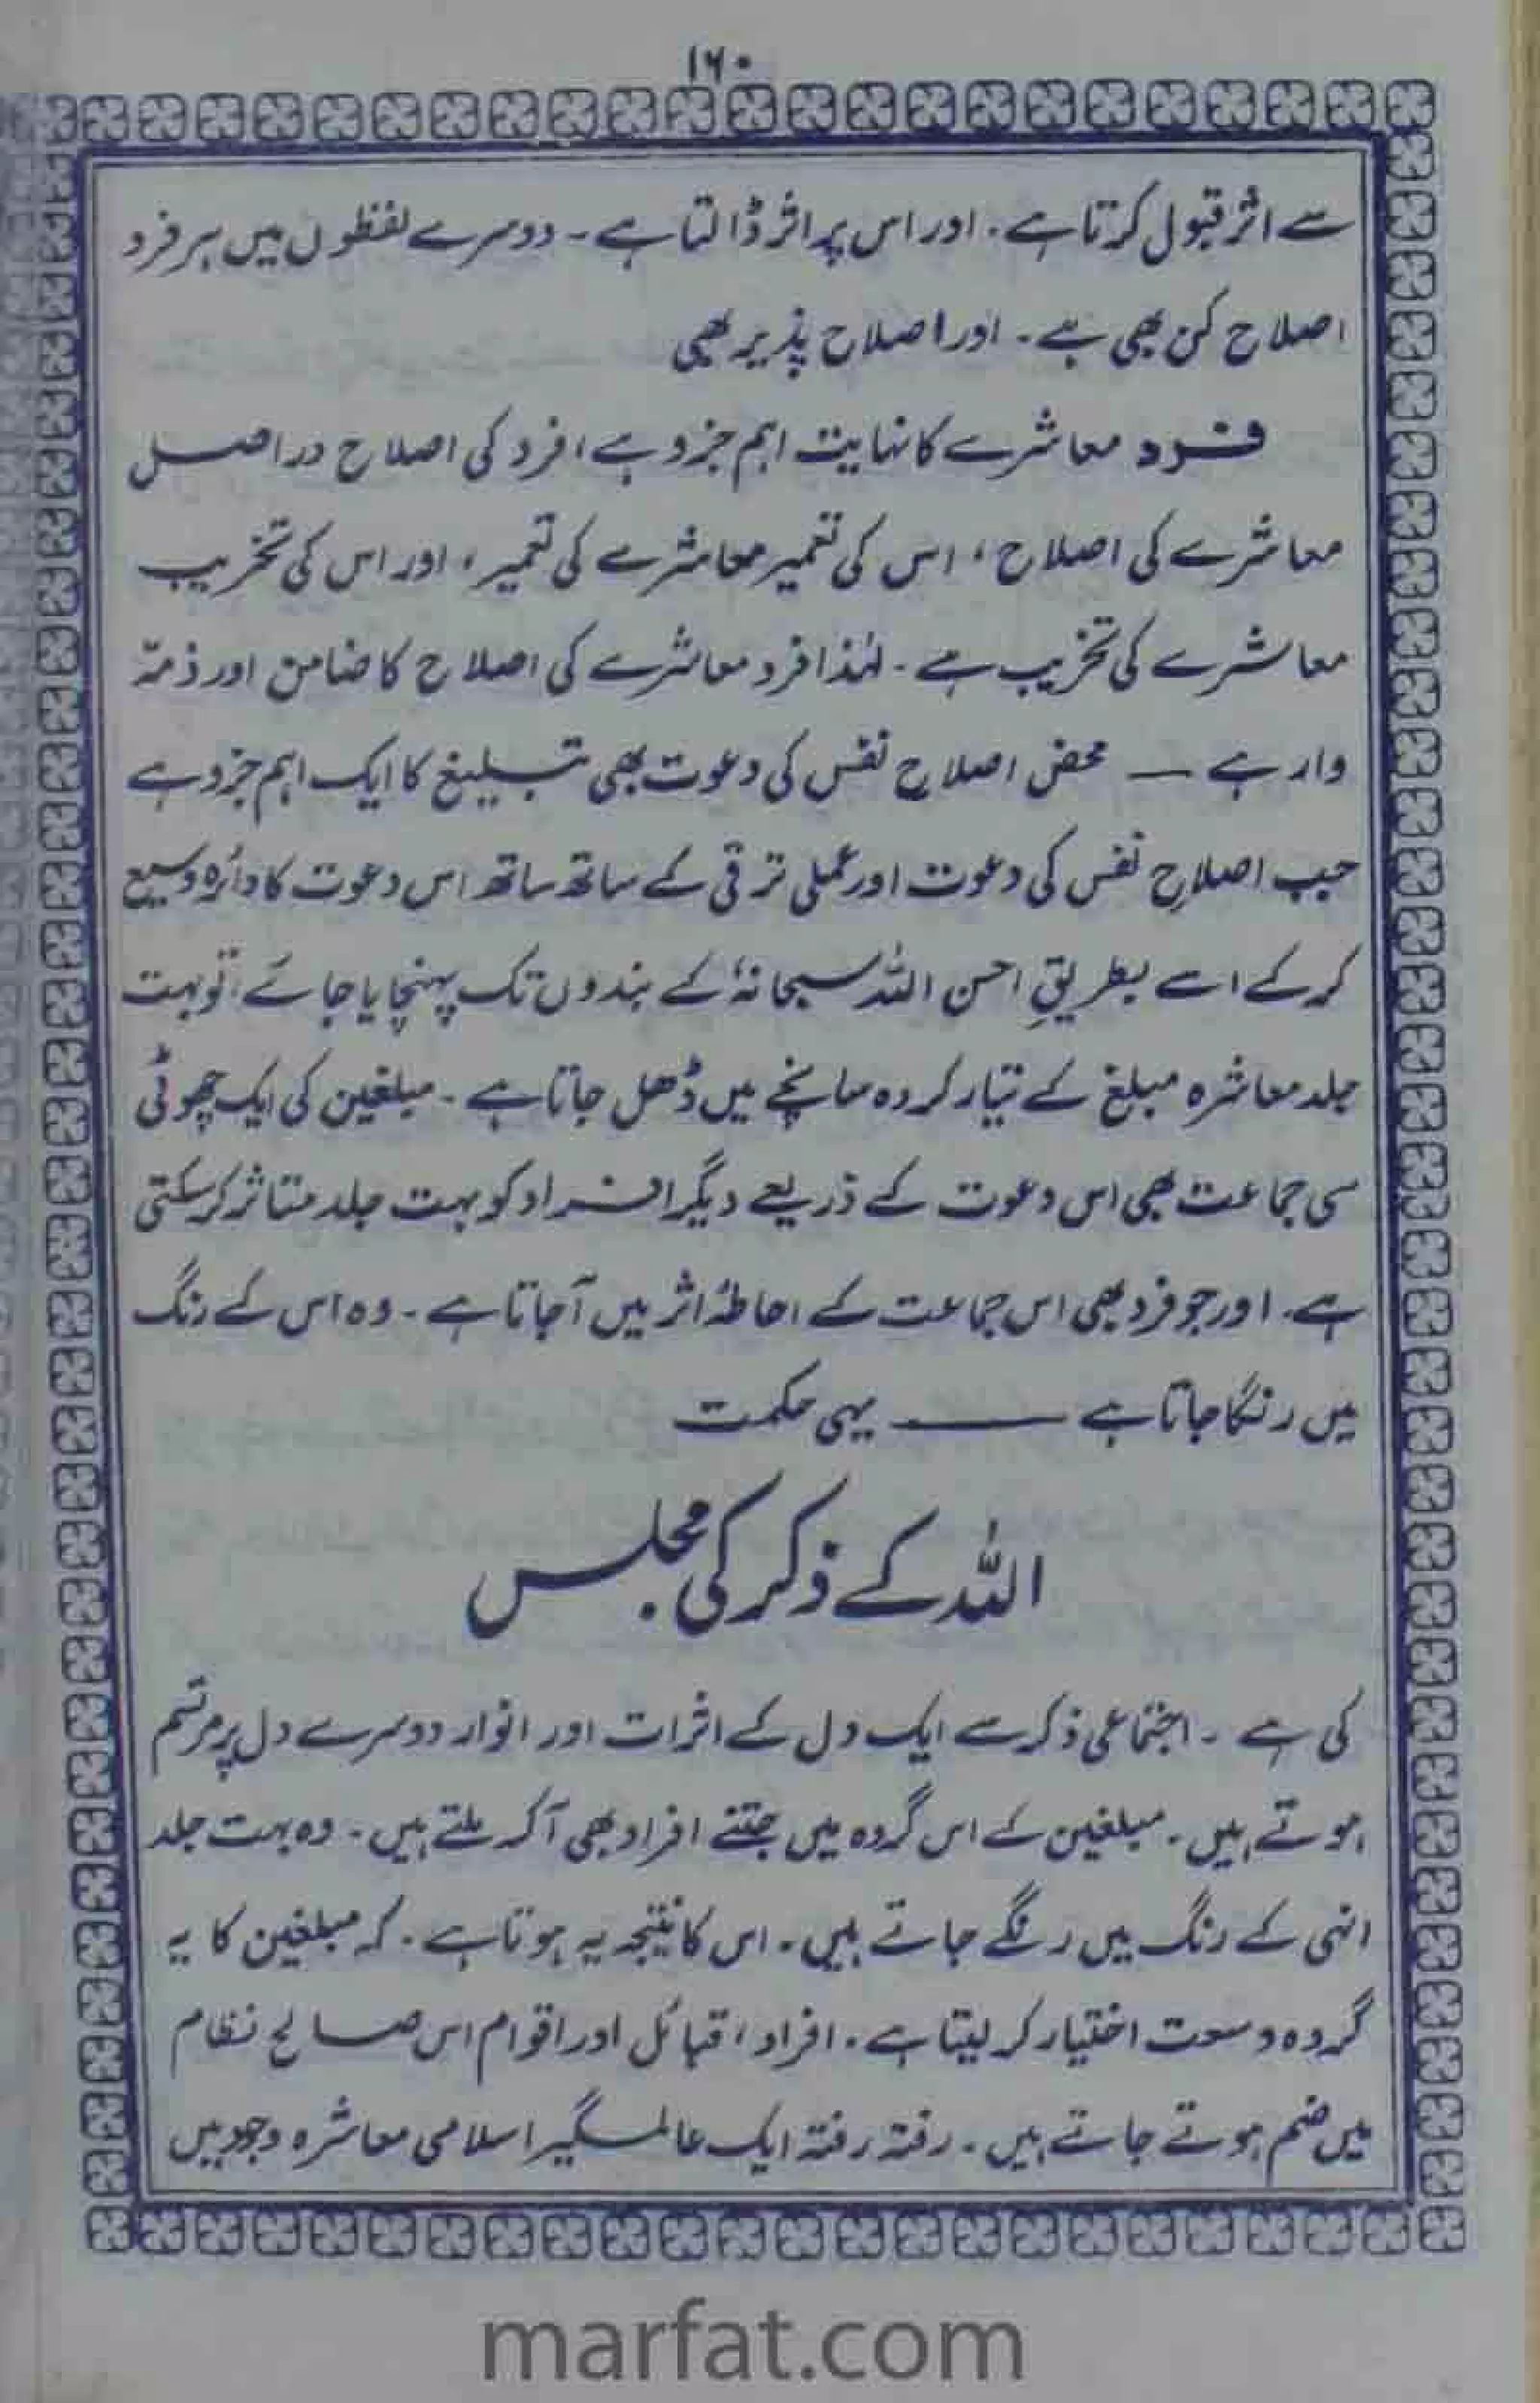 ۱۶۰
سے اثر قبول کرتا ہے۔ اور اس پر اثر ڈالتا ہے۔ دوسرے لفظوں میں ہر فرد
اصلاح کن بھی ہے۔ اور اصلاح پذیر بھی
فرد معاشرے کا نہایت اہم جزو ہے، فرد کی اصلاح دراصل
معاشرے کی اصلاح، اس کی تعمیر معاشرے کی تعمیر، اور اس کی تخریب
معاشرے کی تخریب ہے۔ لہٰذا فرد معاشرے کی اصلاح کا ضامن اور ذمہّ
وار ہے — محض اصلاح نفس کی دعوت بھی تبلیغ کا ایک اہم جزو ہے
جب اصلاحِ نفس کی دعوت اور عملی ترقی کے ساتھ ساتھ اس دعوت کا دائرہ وسیع
کر کے اسے بطریقِ احسن اللہ سبحانہٗ کے بندوں تک پہنچایا جائے، تو بہت
جلد معاشرہ مبلغ کے تیار کردہ سانچے میں ڈھل جاتا ہے۔ مبلغین کی ایک چھوٹی
سی جماعت بھی اس دعوت کے ذریعے دیگر افراد کو بہت جلد متاثر کر سکتی
ہے۔ اور جو فرد بھی اس جماعت کے احاطۂ اثر میں آ جاتا ہے۔ وہ اس کے رنگ
میں رنگا جاتا ہے —— یہی حکمت
اللہ کے ذکر کی مجلس
کی ہے۔ اجتماعی ذکر سے ایک دل کے اثرات اور انوار دوسرے دل پر مرتسم
ہوتے ہیں۔ مبلغین کے اس گروہ میں جتنے افراد بھی آ کر ملتے ہیں۔ وہ بہت جلد
انہی کے رنگ میں رنگے جاتے ہیں۔ اس کا نتیجہ یہ ہوتا ہے۔ کہ مبلغین کا یہ
گروہ وسعت اختیار کر لیتا ہے۔ افراد، قبائل اور اقوام اس صالح نظام
میں ضم ہوتے جاتے ہیں۔ رفتہ رفتہ ایک عالمگیر اسلامی معاشرہ وجود میں
marfat.com